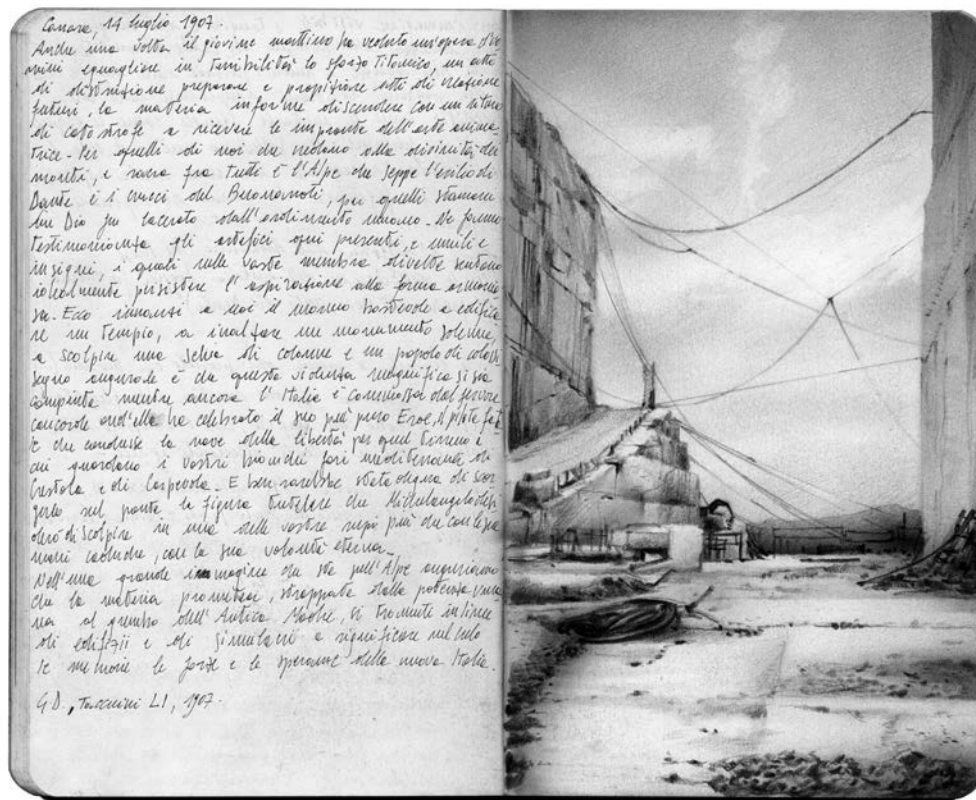 Carrara, 14 luglio 1907.
Anche una volta il giovine mattino ha veduto un'opera d'uo
mini eguagliare in terribilità lo sforzo titanico, un atto
di distruzione preparare e propiziare atti di creazione
futuri, la materia informe discendere con un
di catastrofe a ricevere le impronte dell'arte anima
trice. Per quelli di noi che credono alla divinità dei
monti, e sacra fra tutti è l'Alpe che seppe l'esilio di
Dante e i crucci del Buonarroti, per quelli stamane
un Dio fu lacerato dall'ardimento umano. Ne fanno
testimonianza gli artefici qui presenti, e umili e
insigni, i quali nelle vaste membra divelte sentono
idealmente persistere l'aspirazione alla forma armonio
sa. Ecco innanzi a noi il marmo bastevole a edifica
re un tempio, a inalzare un monumento solenne,
a scolpire una selva di colonne e un popolo di colossi
segno augurale è che questa violenza magnifica si sia
compiuta mentre ancora l'Italia è commossa dal fervore
concorde ond'ella ha celebrato il suo più puro Eroe, il pilota fat
le che condusse la nave della libertà per quel Tirreno a
cui guardano i vostri bianchi fari mediterranei di
e di . E ben sarebbe stata degna di
sul ponte la figura tutelare che Michelangelo
di scolpire in una delle vostre rupi più che con le sue
mani caduche, con la sua volontà eterna.
Nell'una grande immagine che sta sull'Alpe auguriamo
che la materia promessa, strappata dalla potenza uma
na al grembo dell'Antica Madre, si tramuti in linee
di edifizii e di simulacri a significare nel cielo
le memorie le forze e le speranze della nuova Italia.
G.D., Taccuini LI, 1907.